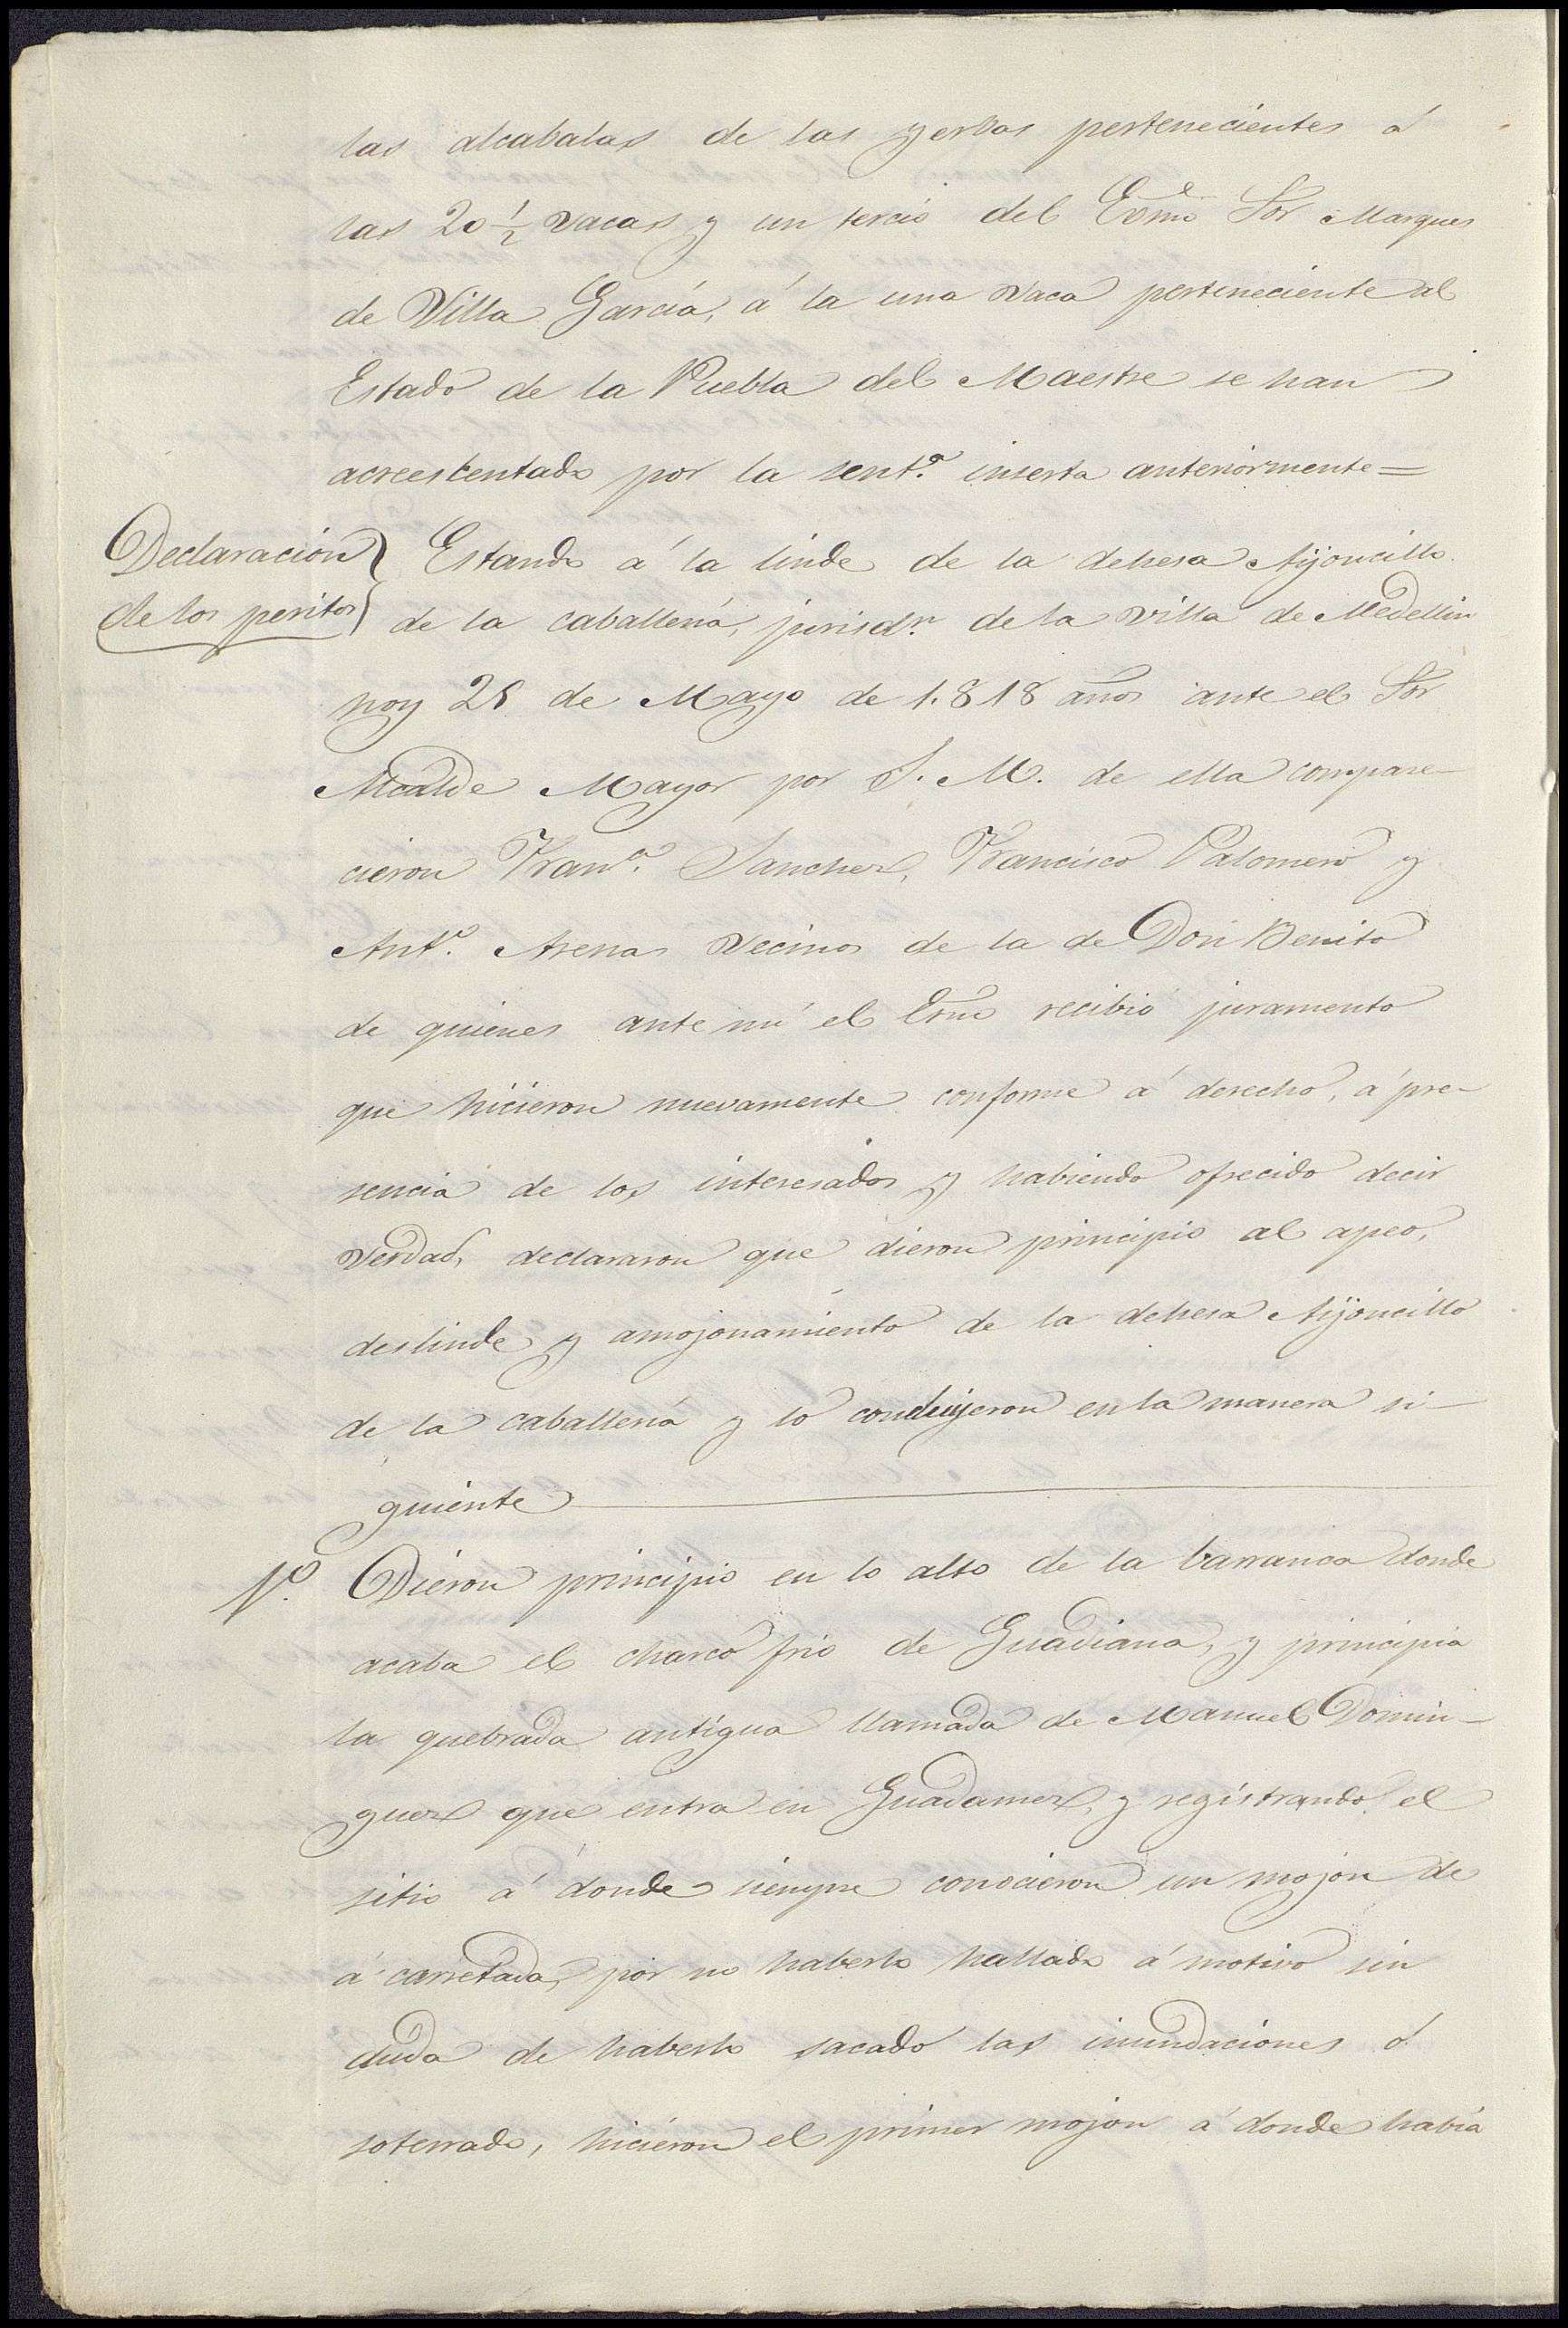 las alcabalas de las yerbas pertenecientes á
las 20 ½ vacas y un tercio del Exmo Sor Marques
de Villa Garcia, á la una vaca perteneciente al
Estado de la Puebla del Maestre se han
acrescentado por la sent.ª inserta anteriormente=
Declaración
de los peritos
Estando á la linde de la dehesa Aijoncillo
de la caballería, jurisd.n de la villa de Medellin
hoy 28 de Mayo de 1.818 años ante el Sor
Alcalde Mayor por S. M. de ella compare-
cieron Fran.co Sanchez, Francisco Palomero y
Ant.º Arenas vecinos de la de Don Benito
de quienes ante mí el Esno recibió juramento
que hicieron nuevamente conforme á derecho, á pre-
sencia de los interesados y habiendo ofrecido decir
verdad, declararon que dieron principio al apeo,
deslinde y amojonamiento de la dehesa Aijoncillo
de la caballería y lo condujeron en la manera si-
guiente
1º. Dieron principio en lo alto de la barranca donde
acaba el charco frio de Guadiana, y principia
la quebrada antigua llamada de Manuel Domin-
guez que entra en Guadamez, y registrando el
sitio á donde siempre conocieron un mojon de
á carretada, por no haberlo hallado á motivo sin
duda de haberlo sacado las inundaciones ó
soterrado, hicieron el primer mojon á donde había